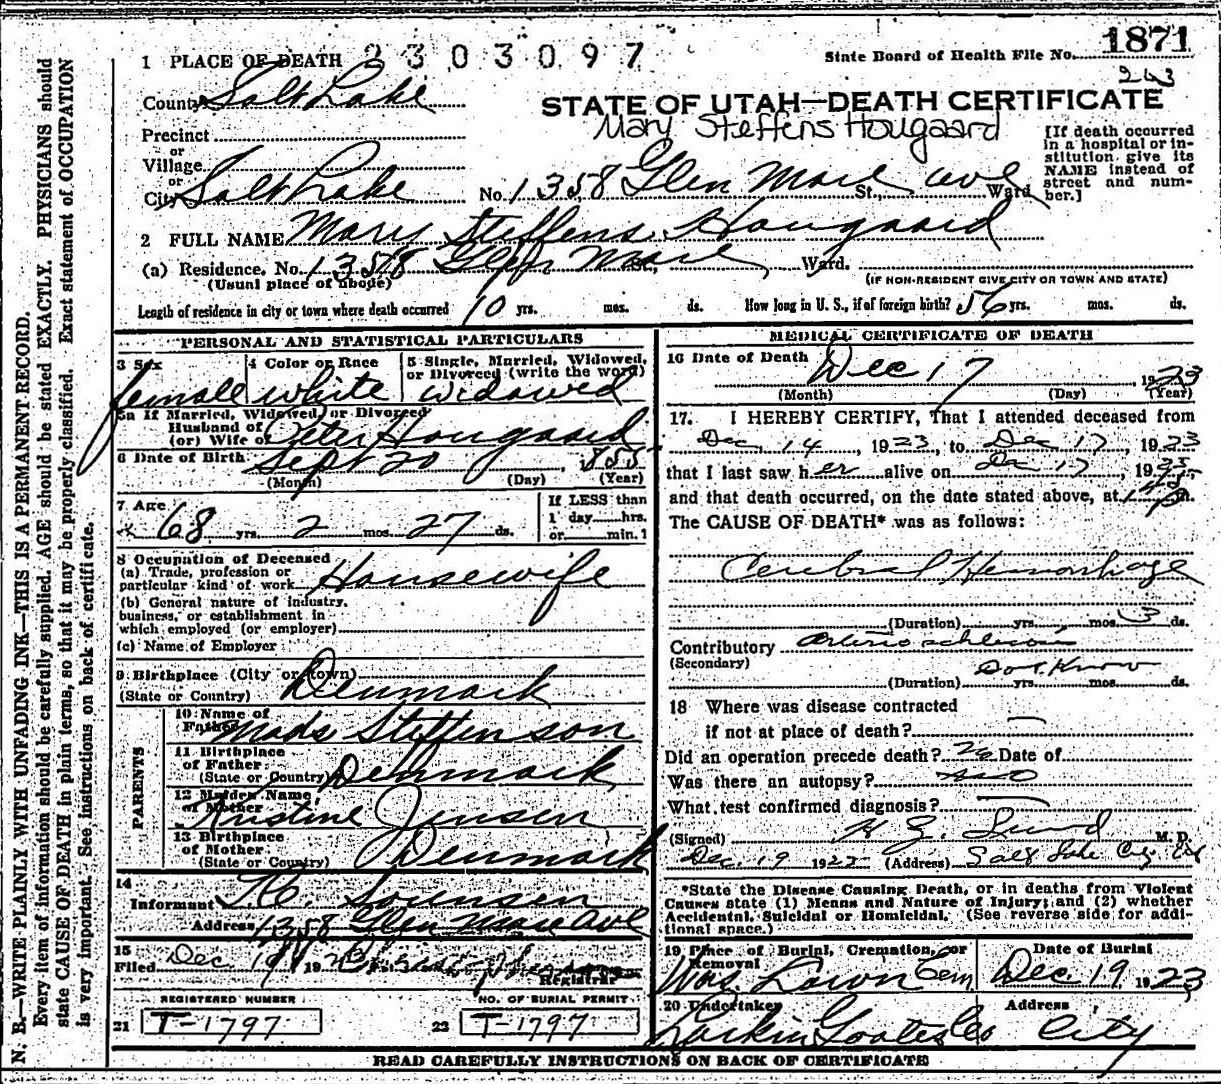 1 PLACE OF DEATH 2303097
State Board of Health File No. 1871
243
County Salt Lake
STATE OF UTAH—DEATH CERTIFICATE
Mary Steffens Hougaard
Precinct
or
Village
or
City Salt Lake No. 1358 Glen Mare St., ave Ward
[If death occurred
in a hospital or in-
stitution give its
NAME instead of
street and num-
ber.]
2 FULL NAME Mary Steffens Hougaard
(a) Residence. No. 1358 Glen Mare St., Ward.
(Usual place of abode) (IF NON-RESIDENT GIVE CITY OR TOWN AND STATE)
Length of residence in city or town where death occurred 10 yrs. mos. ds. How long in U. S., if of foreign birth? 56 yrs. mos. ds.
PERSONAL AND STATISTICAL PARTICULARS
3 Sex 4 Color or Race 5 Single, Married, Widowed,
or Divorced (write the word)
female white widowed
5a If Married, Widowed, or Divorced
Husband of
(or) Wife of Peter Hougaard
6 Date of Birth Sept 20, 1855
(Month) (Day) (Year)
7 Age 68 yrs. 2 mos. 27 ds.
If LESS than
1 day hrs.
or min.
8 Occupation of Deceased
(a) Trade, profession or
particular kind of work Housewife
(b) General nature of industry,
business, or establishment in
which employed (or employer)
(c) Name of Employer
9 Birthplace (City or town)
(State or Country) Denmark
PARENTS
10 Name of
Father Mads Steffenson
11 Birthplace
of Father
(State or Country) Denmark
12 Maiden Name
of Mother Kristine Jensen
13 Birthplace
of Mother
(State or Country) Denmark
14
Informant Sorensen
Address 1358 Glen Mare Ave
15
Filed Dec 19 1923
Registrar
REGISTERED NUMBER NO. OF BURIAL PERMIT
21 T-1797 22 T-1797
MEDICAL CERTIFICATE OF DEATH
16 Date of Death Dec 17, 1923
(Month) (Day) (Year)
17. I HEREBY CERTIFY, That I attended deceased from
Dec. 14, 1923, to Dec 17, 1923
that I last saw her alive on Dec 17, 1923
and that death occurred, on the date stated above, at m.
The CAUSE OF DEATH* was as follows:
Cerebral Hemorrhage
(Duration) yrs. mos. 3 ds.
Contributory
(Secondary) Don't Know
(Duration) yrs. mos. ds.
18 Where was disease contracted
if not at place of death? —
Did an operation precede death? No Date of
Was there an autopsy? no
What test confirmed diagnosis? —
(Signed) H. G. Lund M. D.
Dec. 19 1923 (Address) Salt Lake City Ut
*State the Disease Causing Death, or in deaths from Violent
Causes state (1) Means and Nature of Injury; and (2) whether
Accidental, Suicidal or Homicidal. (See reverse side for addi-
tional space.)
19 Place of Burial, Cremation, or Date of Burial
Removal
Was. Lawn Cem Dec. 19, 1923
20 Undertaker Address
Larkin City
READ CAREFULLY INSTRUCTIONS ON BACK OF CERTIFICATE
N. B.—WRITE PLAINLY WITH UNFADING INK—THIS IS A PERMANENT RECORD.
Every item of information should be carefully supplied. AGE should be stated EXACTLY. PHYSICIANS should
state CAUSE OF DEATH in plain terms, so that it may be properly classified. Exact statement of OCCUPATION
is very important. See instructions on back of certificate.